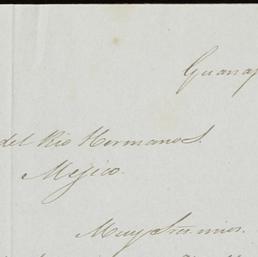 Guana
del Rio Hermanos.
Mejico.
Muy Sres. mios.